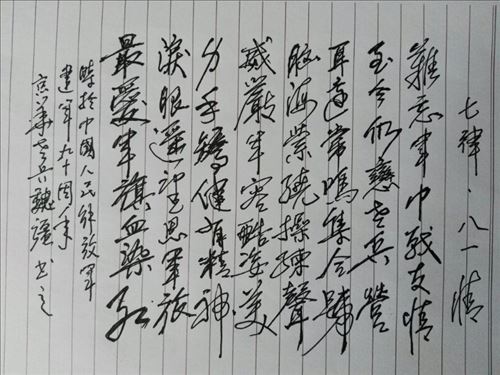 七律·八一情
難忘军中戰友情
至今仍戀老兵營
耳邊常鳴集合號
腦海縈繞操練聲
威嚴军容酷姿美
身手矯健有精神
淚眼遥望思军旅
最愛军旗血染红
時於中國人民解放军
建军九十周年
京華老兵魏强书之